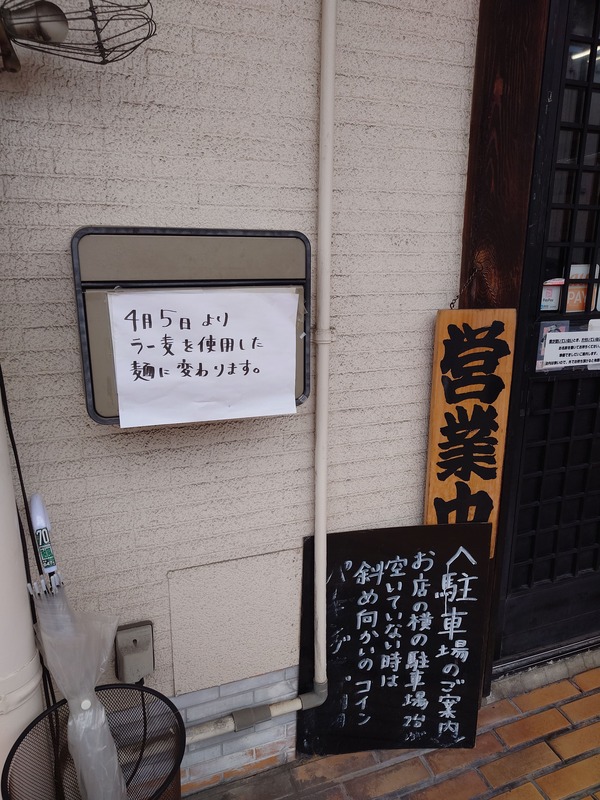 4月5日より
ラー麦を使用した
麺に変わります。
営業中
駐車場のご案内
お店の横の駐車場2台が
空いていない時は
斜め向かいのコイン
70
PAY